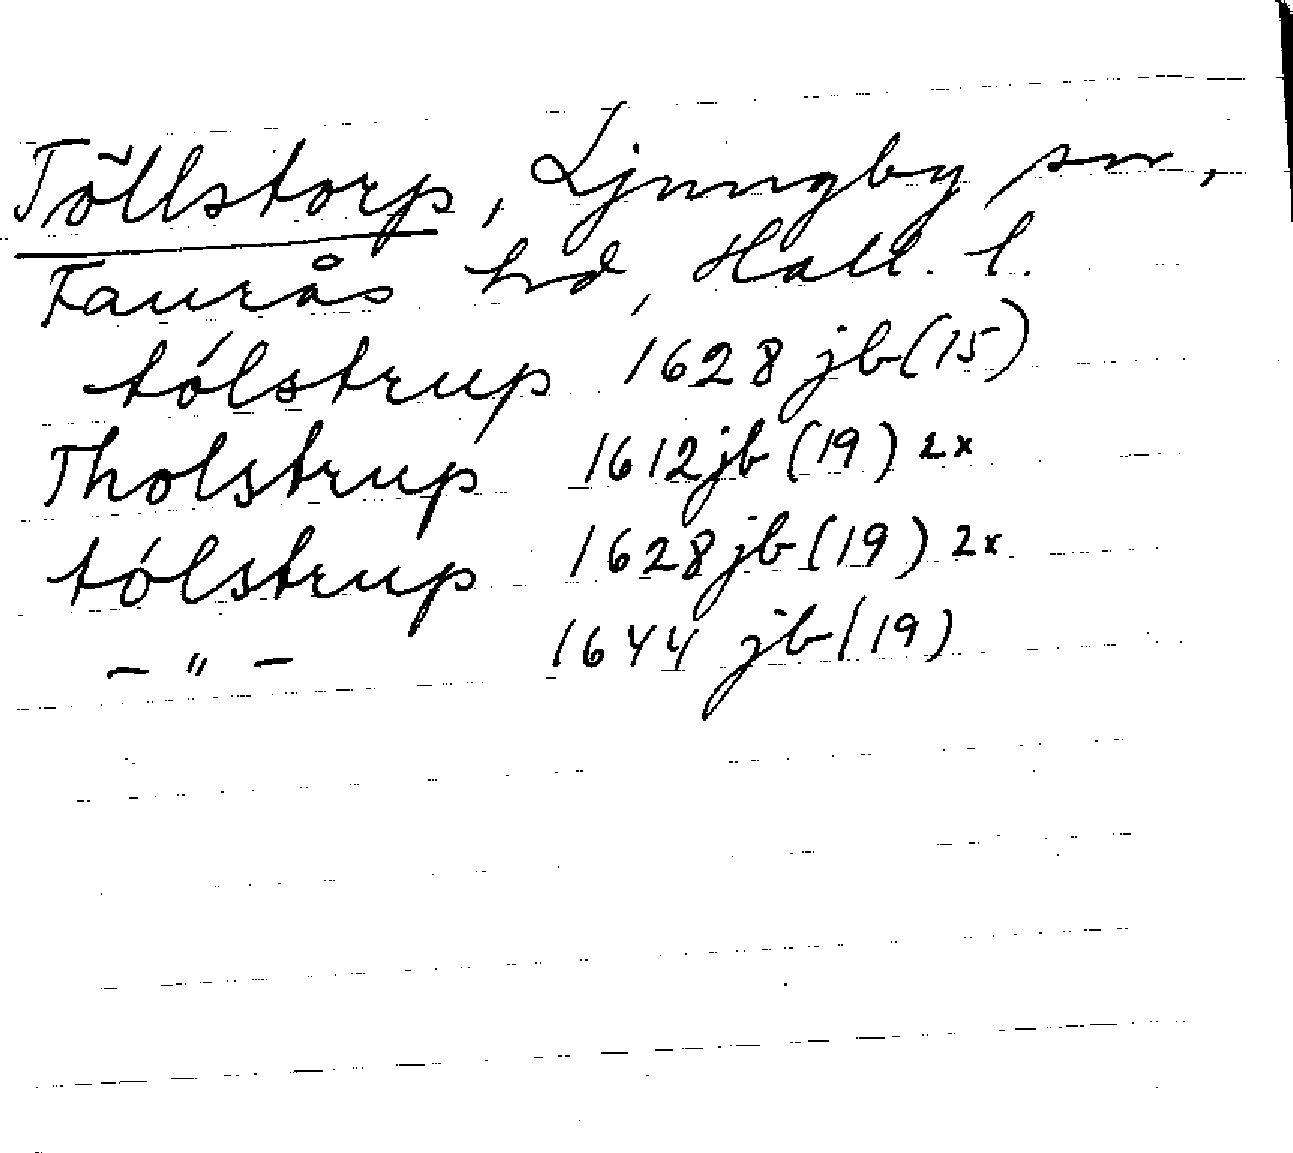 Töllstorp, Ljungby sn,
Faurås hd, Hall. l.
tólstrup 1628 jb (15)
Tholstrup 1612 jb (19) 2x
tólstrup 1628 jb (19) 2x
— " — 1644 jb (19)